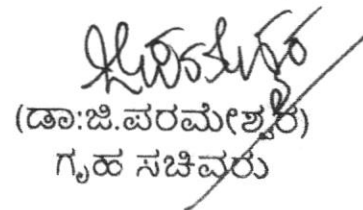 (ಡಾ:ಜಿ.ಪರಮೇಶ್ವರ)
ಗೃಹ ಸಚಿವರು